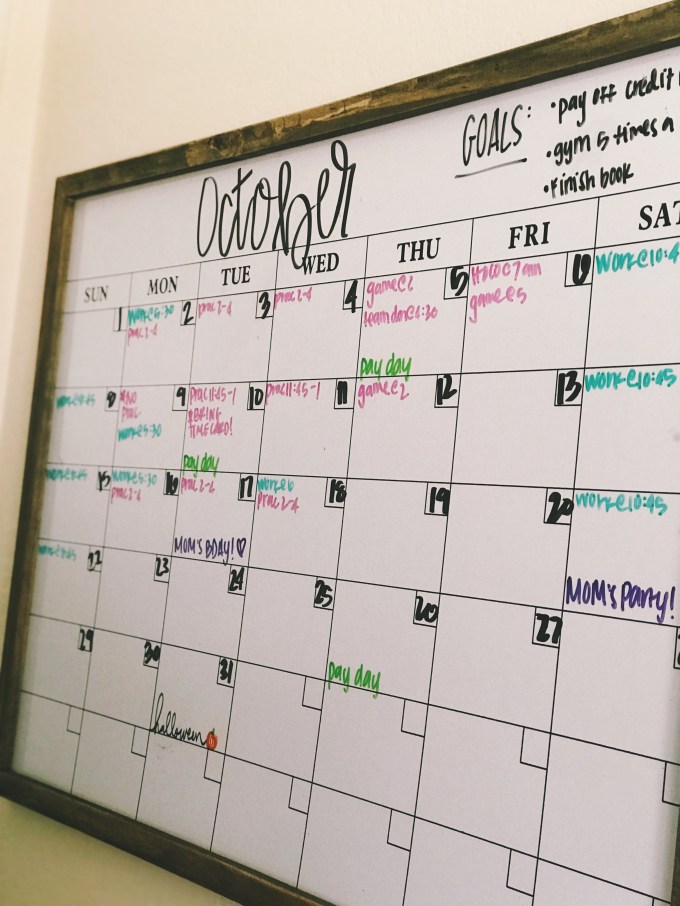 GOALS:
•pay off credit
•gym 5 times a
•Finish book
October
SUN MON TUE WED THU FRI SAT
1
work@5:30
prac 2-4
2
prac 2-4
3
prac 2-4
4
game@2
teamdinn@6:30
pay day
5
HOCO @7am
game@5
6
work@10:4
work@8:45
8
*NO
prac
work@5:30
9
prac 11:45-1
*BRING
TIMECARD!
pay day
10
prac 11:45-1
11
game@2
12
13
work@10:45
work@8:45
15
work@5:30
prac 2-4
16
prac 2-4
MOM'S BDAY!♡
17
work@6
prac 2-4
18
19
20
work@10:45
MOM'S Party!
work@8:45
22
23
24
25
pay day
26
27
29
30
halloween
31